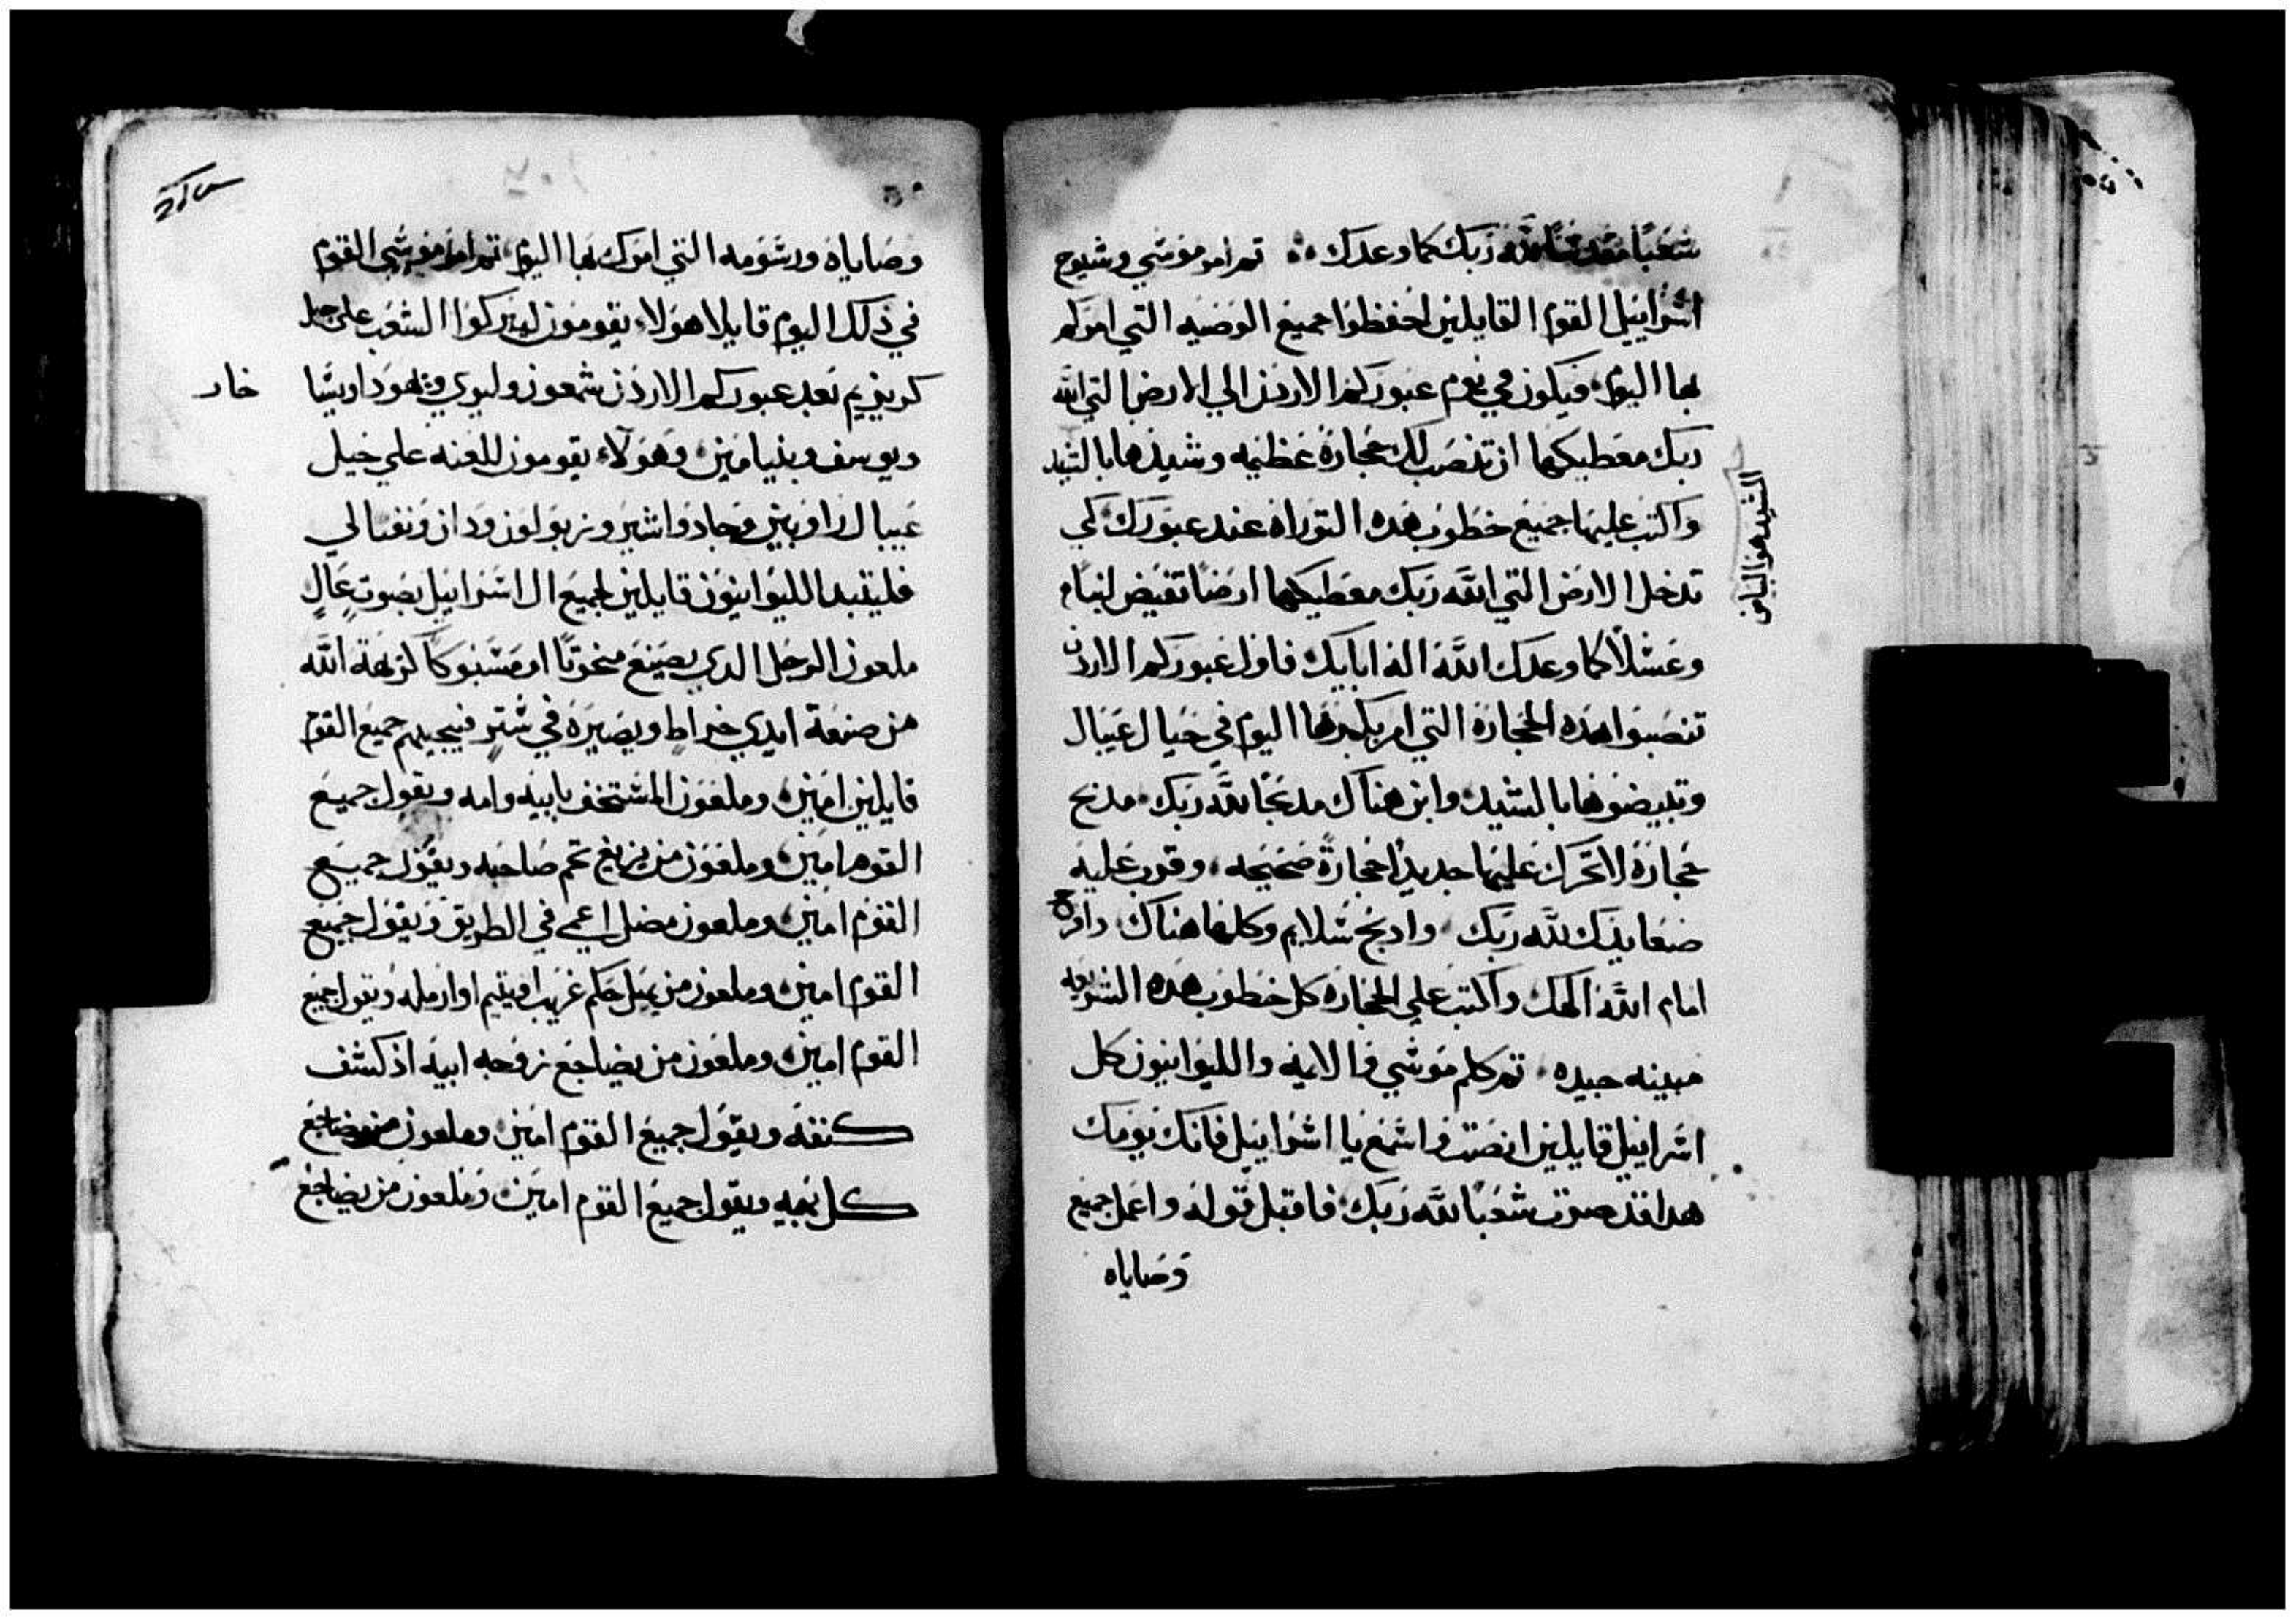 شعبًا مقدسًا لله ربك كما وعدك ؞ تم امر موسي وشيوخ
اسراييل القوم القايلين احفظوا جميع الوصيه التي امركم
بها اليوم فيكون في يوم عبوركم الاردن الي الارض التي الله
ربك معطيكها ان تنصب لك حجارة عظيمه وشيدها بالشيد
واكتب عليها جميع خطوب هده التوراه عند عبورك كي
تدخل الارض التي الله ربك معطيكها ارضًا تفيض لبنًا
وعسلًا كما وعدك الله اله ابايك فاول عبوركم الاردن
تنصبوا هده الحجارة التي امر بكم بها اليوم في جبال عيبال
وتبيضوها بالشيد وابن هناك مدبحًا لله ربك مدبح
حجارة لا تحرك عليها حديدًا حجارة صحيحه وقرب عليه
صعايدك لله ربك وادبح سلايم وكلها هناك وافرح
امام الله الهك واكتب علي الحجاره كل خطوب هده الشريعه
مبينه جيده تم كلم موسي والايمه والليوانيون كل
اسراييل قايلين انصت واسمع يا اسراييل فانك يومك
هدا قد صرت شعبًا لله ربك فاقبل قوله واعمل جميع
وصاياه
الشيد هو البياض
وصاياه ورسومه التي امرك بها اليوم تم امر موسي القوم
في ذلك اليوم قايلا هولاء يقومون ليبركوا الشعب علي جبل
كريزيم بعد عبوركم الاردن شمعون وليوي ويهودا ويسا
خار
ويوسف وبنيامين وهولاء يقومون للعنه علي جبل
عيبال راوبين وجاد واشير وزبولون ودان ونفتالي
فليقبد الليوانيون قايلين لجميع ال اسراييل بصوت عالٍ
ملعون الرجل الدي يصنع منحوتًا او مسبوكًا كرهة الله
من صنعة ايدي خراط ويصيره في سترٍ فيجيبهم جميع القوم
قايلين امين وملعون المستخف بابيه وامه ويقول جميع
القوم امين وملعون من يزيغ تخم صاحبه ويقول جميع
القوم امين وملعون مضل اعمي في الطريق ويقول جميع
القوم امين وملعون من يميل حكم غريب او يتيم او ارمله ويقول جميع
القوم امين وملعون من يضاجع زوجه ابيه اذ كشف
كنفه ويقول جميع القوم امين وملعون من يضاجع
كل بهيمه ويقول جميع القوم امين وملعون من يضاجع